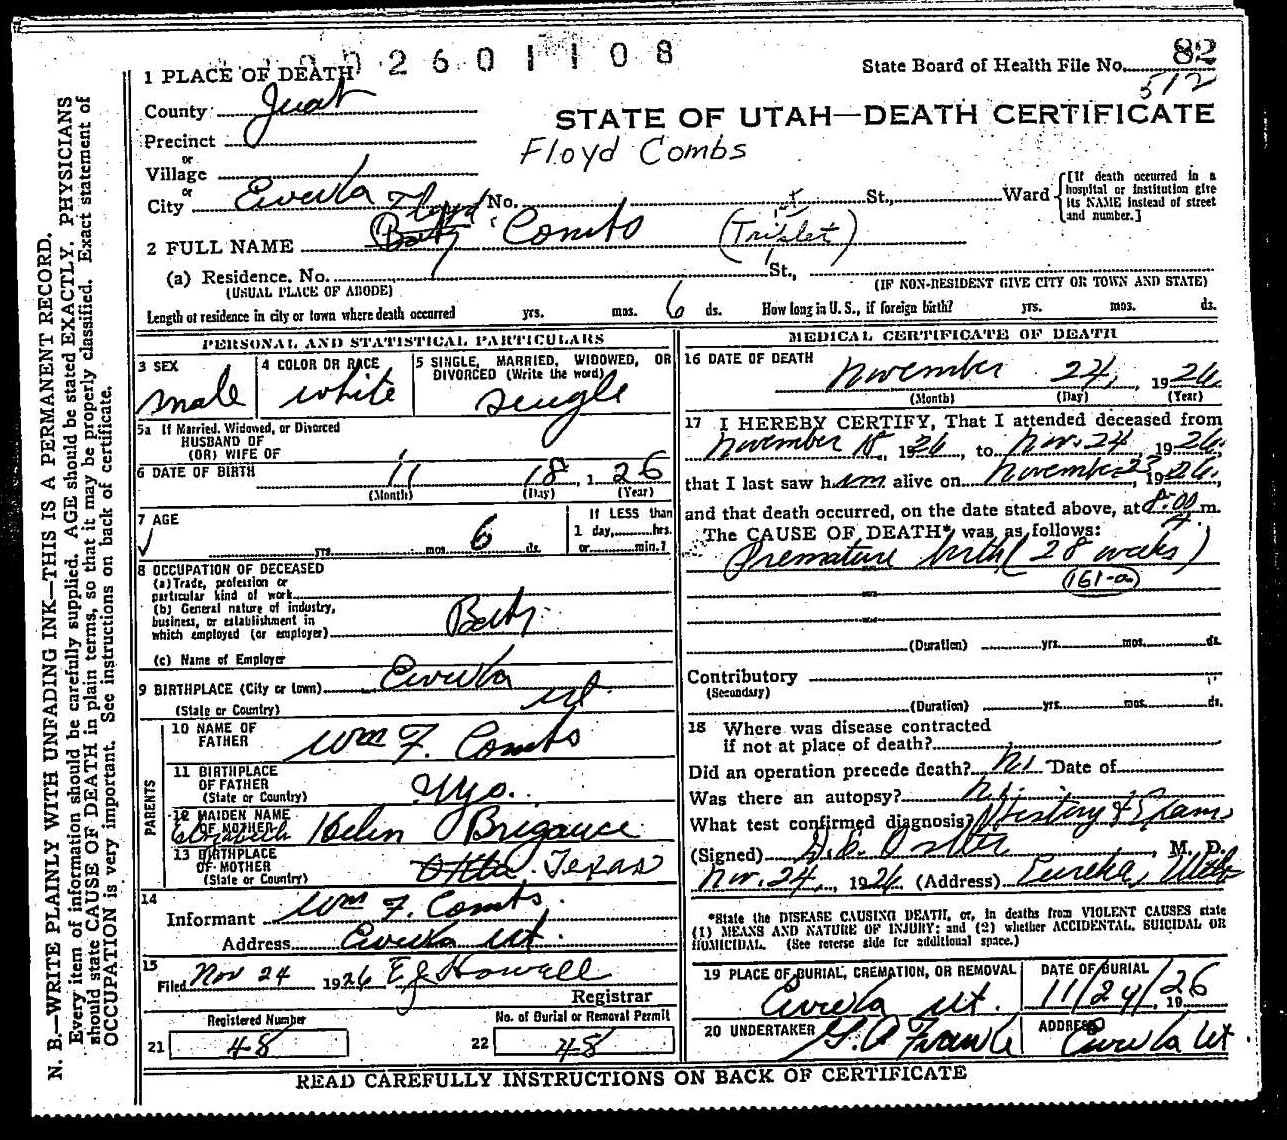 2601108
1 PLACE OF DEATH
State Board of Health File No. 82
512
County Juab
STATE OF UTAH—DEATH CERTIFICATE
Precinct
Floyd Combs
or
Village
or
City Eureka No. St., Ward
[If death occurred in a hospital or institution give its NAME instead of street and number.]
Floyd
2 FULL NAME (Baby) Combs (Triplet)
1st
(a) Residence. No. St.,
(USUAL PLACE OF ABODE) (IF NON-RESIDENT GIVE CITY OR TOWN AND STATE)
Length of residence in city or town where death occurred yrs. mos. 6 ds. How long in U. S., if foreign birth? yrs. mos. ds.
PERSONAL AND STATISTICAL PARTICULARS
3 SEX 4 COLOR OR RACE 5 SINGLE, MARRIED, WIDOWED, OR
DIVORCED (Write the word)
male white single
5a If Married, Widowed, or Divorced
HUSBAND OF
(OR) WIFE OF
6 DATE OF BIRTH 11 18, 1 26
(Month) (Day) (Year)
7 AGE If LESS than
yrs. mos. 6 ds. 1 day, hrs.
or min.?
8 OCCUPATION OF DECEASED
(a) Trade, profession or
particular kind of work
(b) General nature of industry,
business, or establishment in
which employed (or employer) Baby
(c) Name of Employer
9 BIRTHPLACE (City or town) Eureka
(State or Country) Ut.
PARENTS
10 NAME OF
FATHER Wm F. Combs
11 BIRTHPLACE
OF FATHER
(State or Country) Wyo.
12 MAIDEN NAME
OF MOTHER Elizabeth Helen Brigance
13 BIRTHPLACE
OF MOTHER
(State or Country) Utah Texas
14
Informant Wm F. Combs.
Address Eureka Ut.
15
Filed Nov 24 1926 E J Howell
Registrar
Registered Number No. of Burial or Removal Permit
21 48 22 48
MEDICAL CERTIFICATE OF DEATH
16 DATE OF DEATH
November 24, 1926
(Month) (Day) (Year)
17 I HEREBY CERTIFY, That I attended deceased from
November 18, 1926, to Nov. 24, 1926,
that I last saw him alive on November 23, 1926,
and that death occurred, on the date stated above, at 8:00 A. m.
The CAUSE OF DEATH* was as follows:
Premature birth (28 weeks)
161-a
(Duration) yrs. mos. ds.
Contributory
(Secondary)
(Duration) yrs. mos. ds.
18 Where was disease contracted
if not at place of death?
Did an operation precede death? No Date of
Was there an autopsy? No
What test confirmed diagnosis? History & Exam
(Signed) , M. D.
Nov. 24, 1926 (Address) Eureka, Utah
*State the DISEASE CAUSING DEATH, or, in deaths from VIOLENT CAUSES state
(1) MEANS AND NATURE OF INJURY; and (2) whether ACCIDENTAL, SUICIDAL OR
HOMICIDAL. (See reverse side for additional space.)
19 PLACE OF BURIAL, CREMATION, OR REMOVAL DATE OF BURIAL
Eureka Ut. 11/24, 1926
20 UNDERTAKER ADDRESS
Eureka Ut
READ CAREFULLY INSTRUCTIONS ON BACK OF CERTIFICATE
N. B.—WRITE PLAINLY WITH UNFADING INK—THIS IS A PERMANENT RECORD.
Every item of information should be carefully supplied. AGE should be stated EXACTLY. PHYSICIANS
should state CAUSE OF DEATH in plain terms, so that it may be properly classified. Exact statement of
OCCUPATION is very important. See instructions on back of certificate.